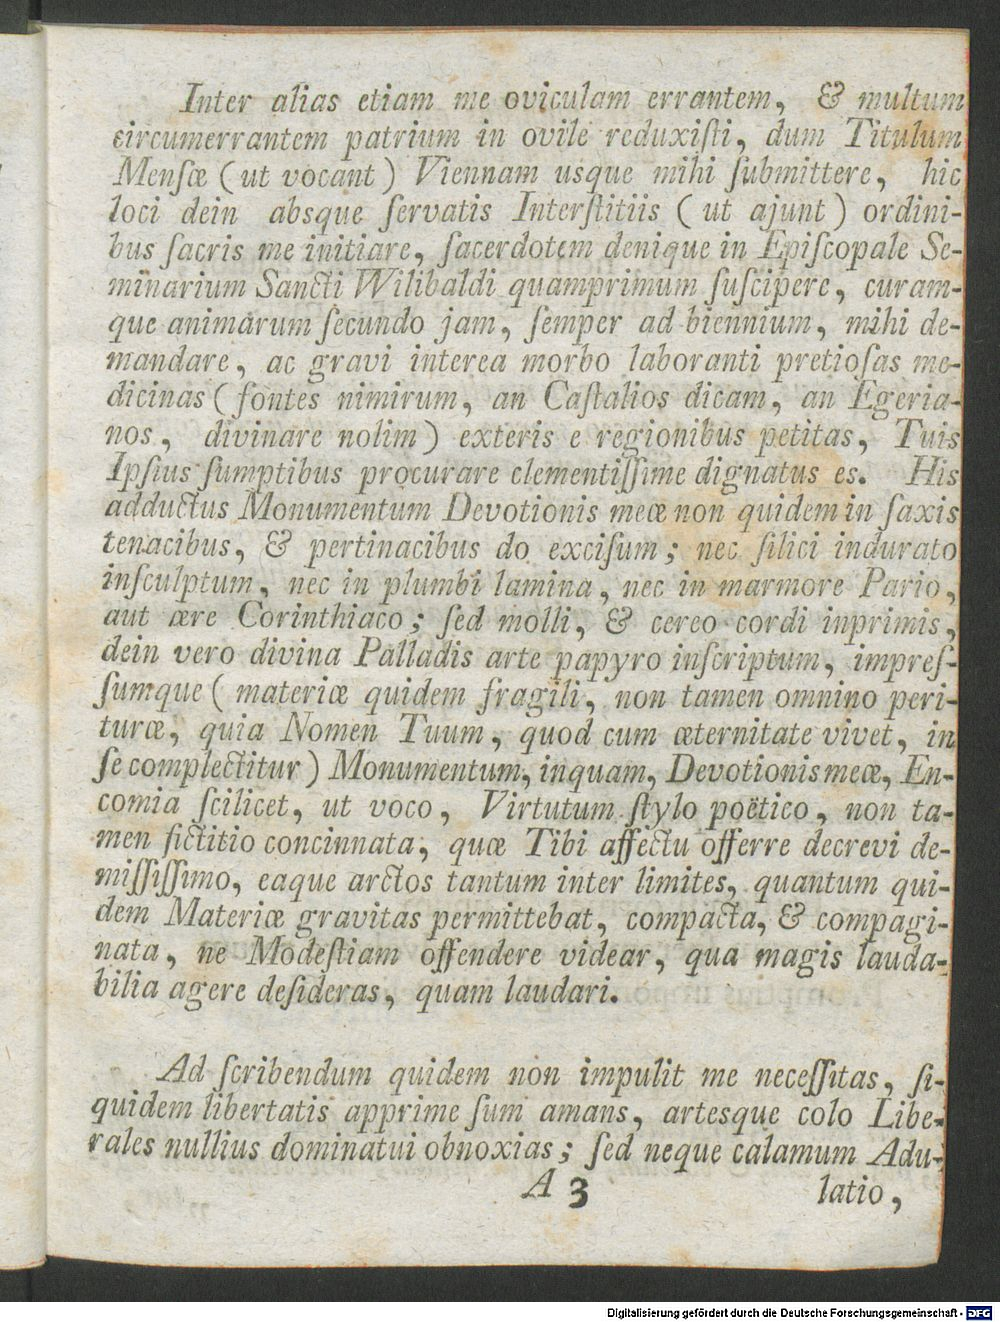 Inter alias etiam me oviculam errantem, & multum
circumerrantem patrium in ovile reduxiſti, dum Titulum
Menſæ (ut vocant) Viennam usque mihi ſubmittere, hic
loci dein absque ſervatis Interſtitiis (ut ajunt) ordini-
bus ſacris me initiare, ſacerdotem denique in Epiſcopale Se-
minarium Sancti Wilibaldi quamprimum ſuſcipere, curam-
que animarum ſecundo jam, ſemper ad biennium, mihi de-
mandare, ac gravi interea morbo laboranti pretioſas me-
dicinas (fontes nimirum, an Caſtalios dicam, an Egeria-
nos, divinare nolim) exteris e regionibus petitas, Tuis
Ipſius ſumptibus procurare clementiſſime dignatus es. His
adductus Monumentum Devotionis meæ non quidem in ſaxis
tenacibus, & pertinacibus do exciſum; nec ſilici indurato
inſculptum, nec in plumbi lamina, nec in marmore Pario,
aut ære Corinthiaco; ſed molli, & cereo cordi inprimis,
dein vero divina Palladis arte papyro inſcriptum, impreſ-
ſumque (materiæ quidem fragili, non tamen omnino peri-
turæ, quia Nomen Tuum, quod cum æternitate vivet, in
ſe complectitur) Monumentum, inquam, Devotionis meæ, En-
comia ſcilicet, ut voco, Virtutum ſtylo poëtico, non ta-
men fictitio concinnata, quæ Tibi affectu offerre decrevi de-
miſſiſſimo, eaque arctos tantum inter limites, quantum qui-
dem Materiæ gravitas permittebat, compacta, & compagi-
nata, ne Modeſtiam offendere videar, qua magis lauda-
bilia agere deſideras, quam laudari.
Ad ſcribendum quidem non impulit me neceſſitas, ſi-
quidem libertatis apprime ſum amans, artesque colo Libe-
rales nullius dominatui obnoxias; ſed neque calamum Adu-
A 3 latio,
Digitalisierung gefördert durch die Deutsche Forschungsgemeinschaft - DFG